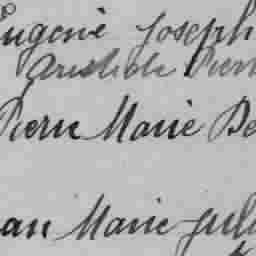 Eugène Joseph
Aristide Pierr
Pierre Marie De
ean Marie Jul